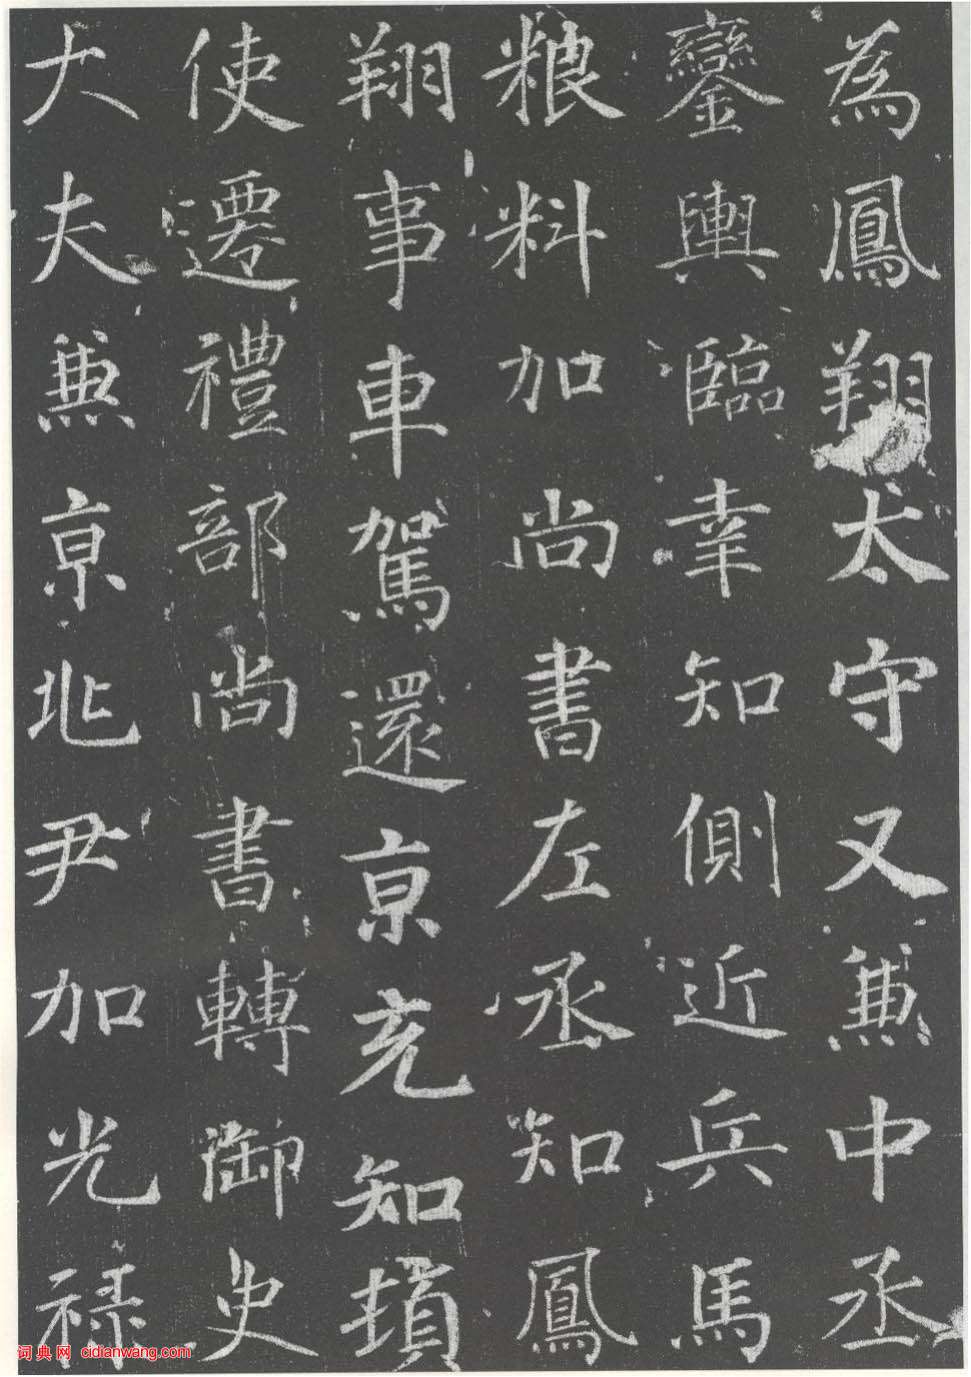 為鳳翔太守又兼中丞
鑾輿臨幸知側近兵馬
粮料加尚書左丞知鳳
翔事車駕還京充知頓
使遷禮部尚書轉御史
大夫兼京兆尹加光禄
词典网 cidianwang.com